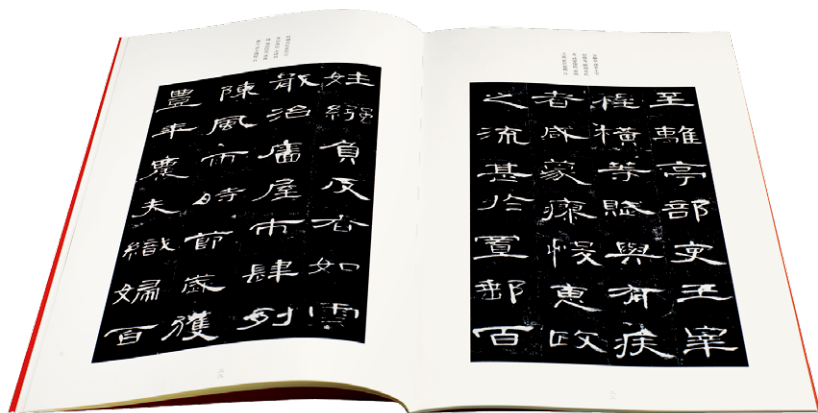 至離亭部吏王宰
程橫等賦與有疾
者咸蒙瘳悛惠政
之流甚於置郵百
姓繦負反者如雲
戢治廧屋市肆列
陳風雨時節歲獲
豐年農夫織婦百